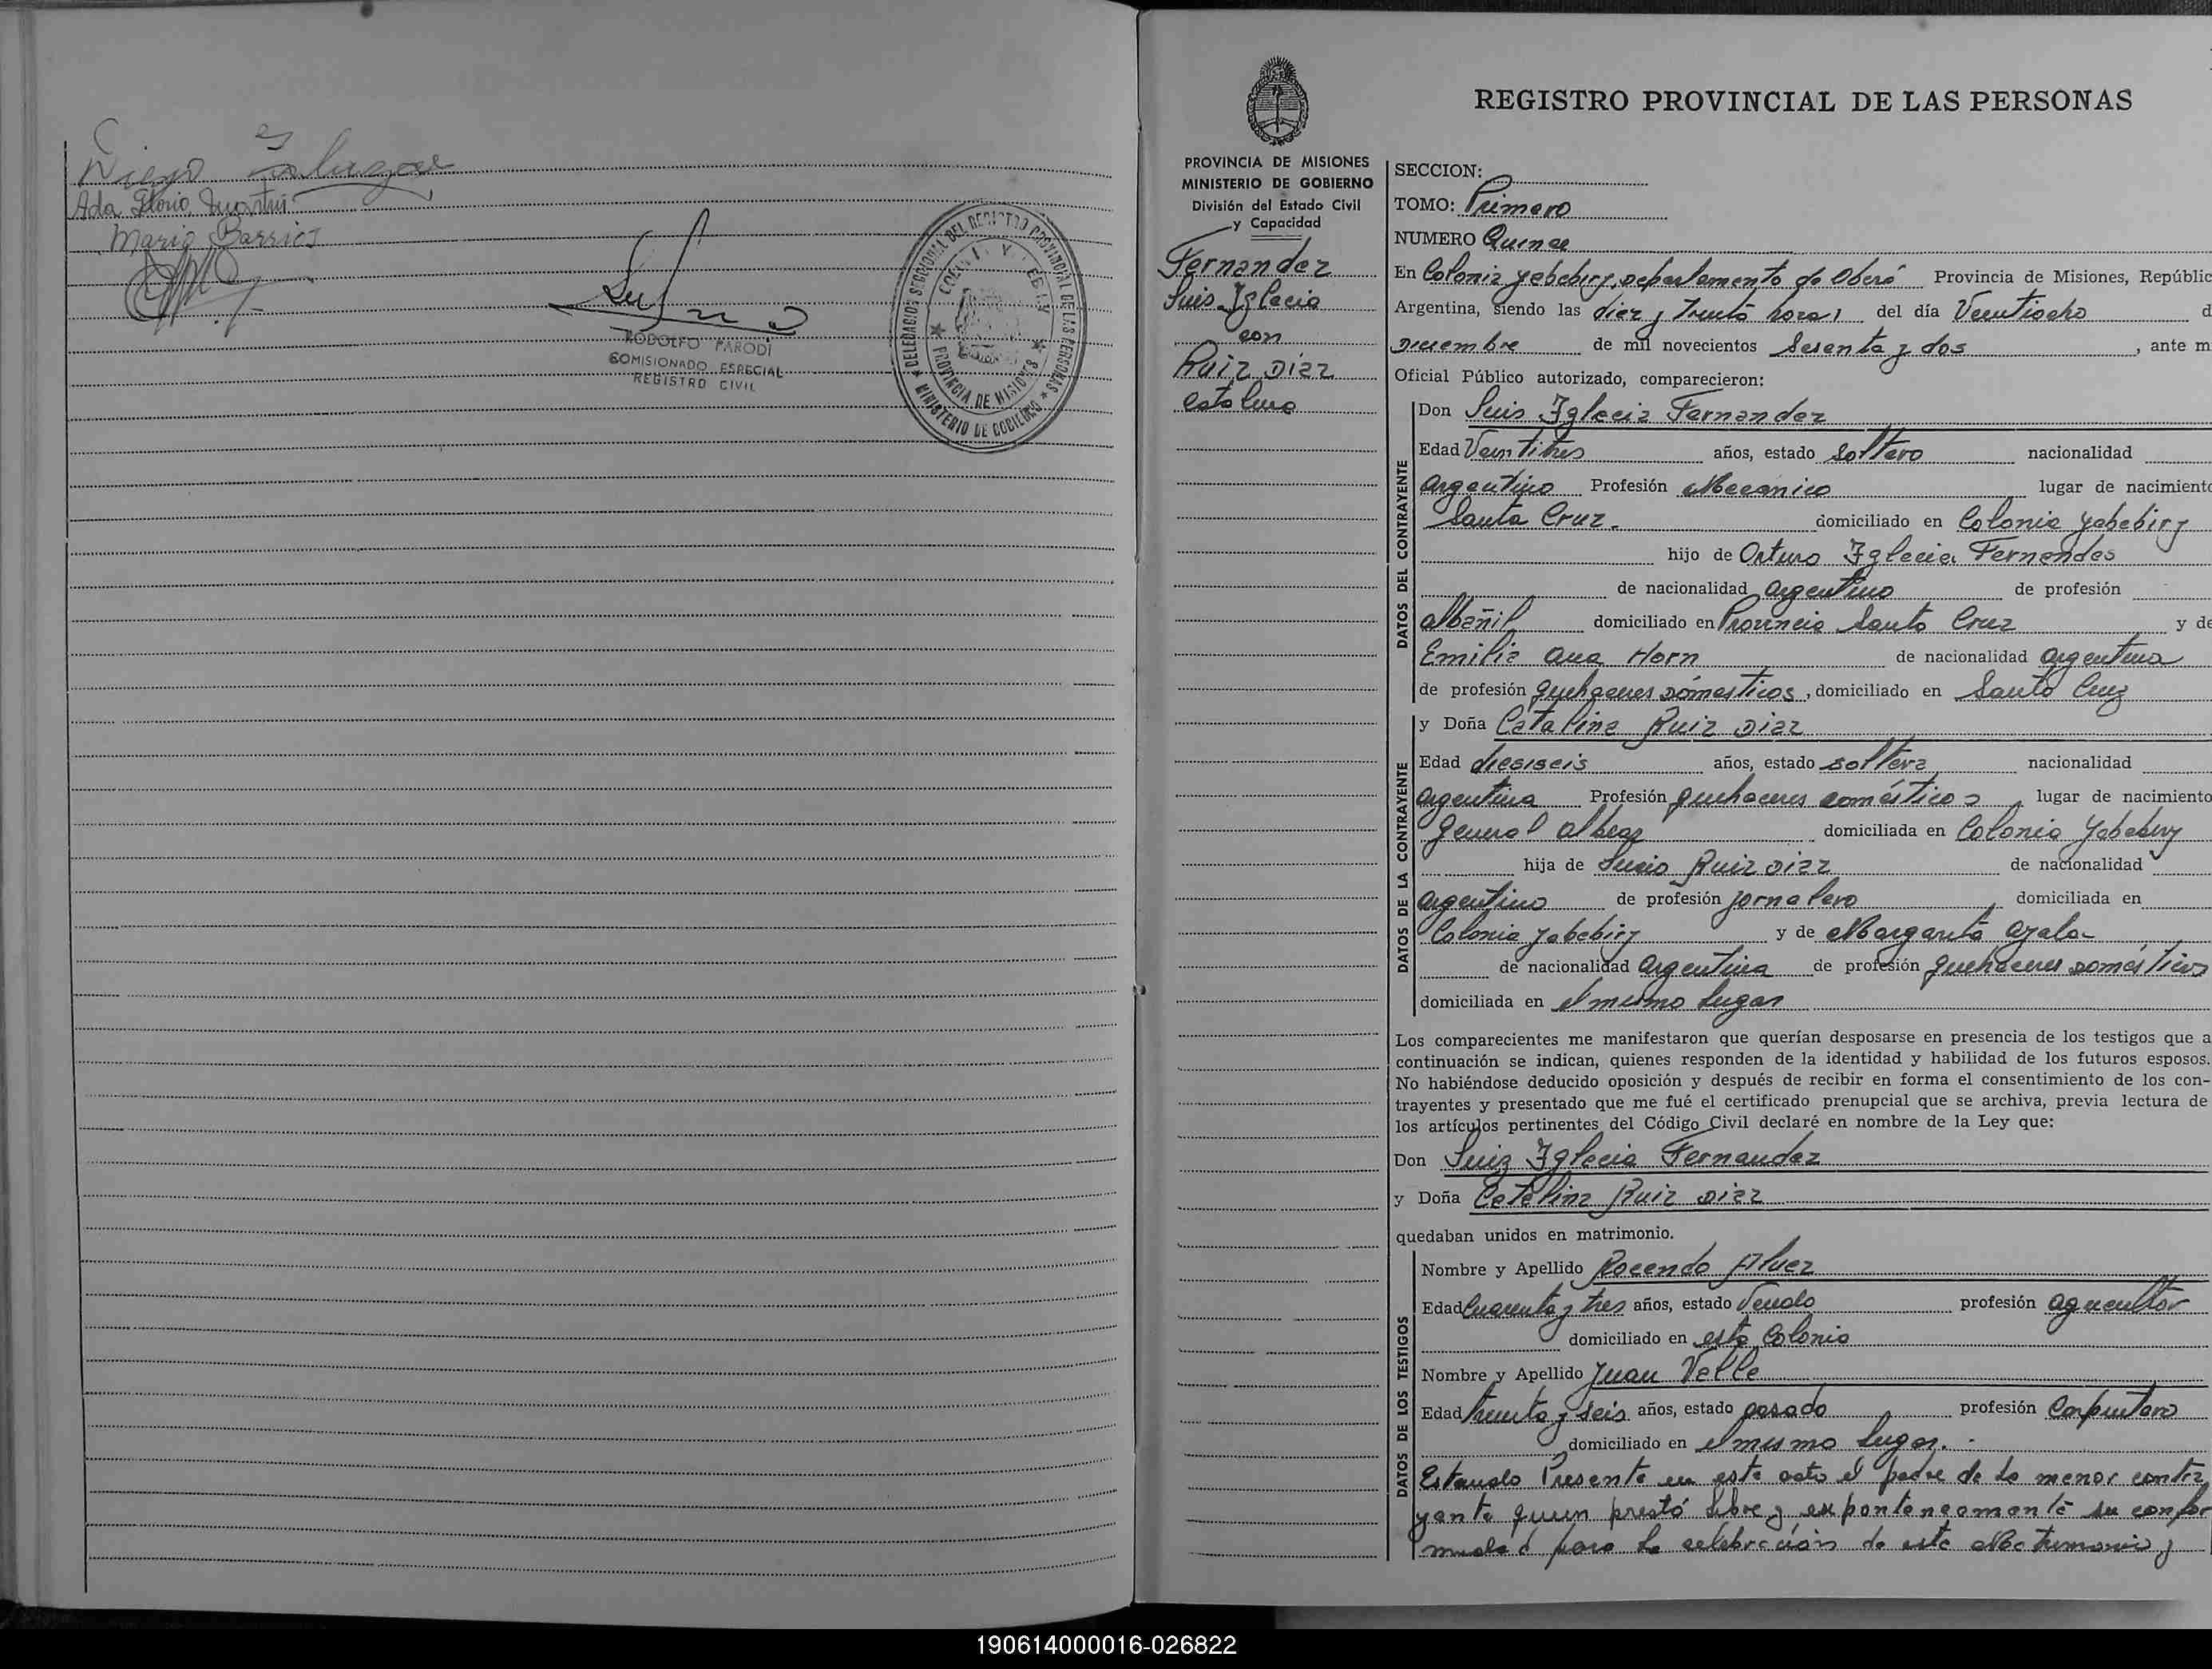 Diego Salazar
Ada Gloria
Mario Barrios
RODOLFO PARODI
COMISIONADO ESPECIAL
REGISTRO CIVIL
DELEGACION SECCIONAL DEL REGISTRO PROVINCIAL DE LAS PERSONAS
PROVINCIA DE MISIONES
MINISTERIO DE GOBIERNO
REGISTRO PROVINCIAL DE LAS PERSONAS
PROVINCIA DE MISIONES
MINISTERIO DE GOBIERNO
División del Estado Civil
y Capacidad
Fernandez
Luis Iglecia
con
Ruiz Diaz
Catalina
SECCION:
TOMO: Primero
NUMERO Quince
En Colonia Yabebiry, departamento de Oberá Provincia de Misiones, Repúblic
Argentina, siendo las diez y Treinta horas del día Veintiocho d
Diciembre de mil novecientos Sesenta y dos, ante m
Oficial Público autorizado, comparecieron:
DATOS DEL CONTRAYENTE
Don Luis Iglecia Fernandez
Edad Veintitres años, estado Soltero nacionalidad
argentino Profesión Mecanico lugar de nacimiento
Santa Cruz. domiciliado en Colonia Yabebiry
hijo de Arturo Iglecia Fernandes
de nacionalidad argentino de profesión
albañil domiciliado en Provincia Santa Cruz y de
Emilia Ana Horn de nacionalidad argentina
de profesión quehaceres domesticos, domiciliado en Santa Cruz
y Doña Catalina Ruiz Diaz
DATOS DE LA CONTRAYENTE
Edad diesiseis años, estado soltera nacionalidad
argentina Profesión quehaceres domésticos lugar de nacimiento
General Albear domiciliada en Colonia Yabebiry
hija de Lucio Ruiz Diaz de nacionalidad
argentino de profesión jornalero domiciliada en
Colonia Yabebiry y de Margarita Ayala
de nacionalidad argentina de profesión quehaceres domésticos
domiciliada en el mismo lugar
Los comparecientes me manifestaron que querían desposarse en presencia de los testigos que a
continuación se indican, quienes responden de la identidad y habilidad de los futuros esposos.
No habiéndose deducido oposición y después de recibir en forma el consentimiento de los con-
trayentes y presentado que me fué el certificado prenupcial que se archiva, previa lectura de
los artículos pertinentes del Código Civil declaré en nombre de la Ley que:
Don Luis Iglecia Fernandez
y Doña Catalina Ruiz Diaz
quedaban unidos en matrimonio.
DATOS DE LOS TESTIGOS
Nombre y Apellido Rocendo Alvez
Edad Cuarenta y tres años, estado Viudo profesión agricultor
domiciliado en esta Colonia
Nombre y Apellido Juan Velle
Edad treinta y seis años, estado casado profesión Carpintero
domiciliado en el mismo lugar.
Estando Presente en este acto el padre de la menor contra
yente quien prestó libre y expontaneamente su confor
midad para la celebración de este Matrimonio y
190614000016-026822